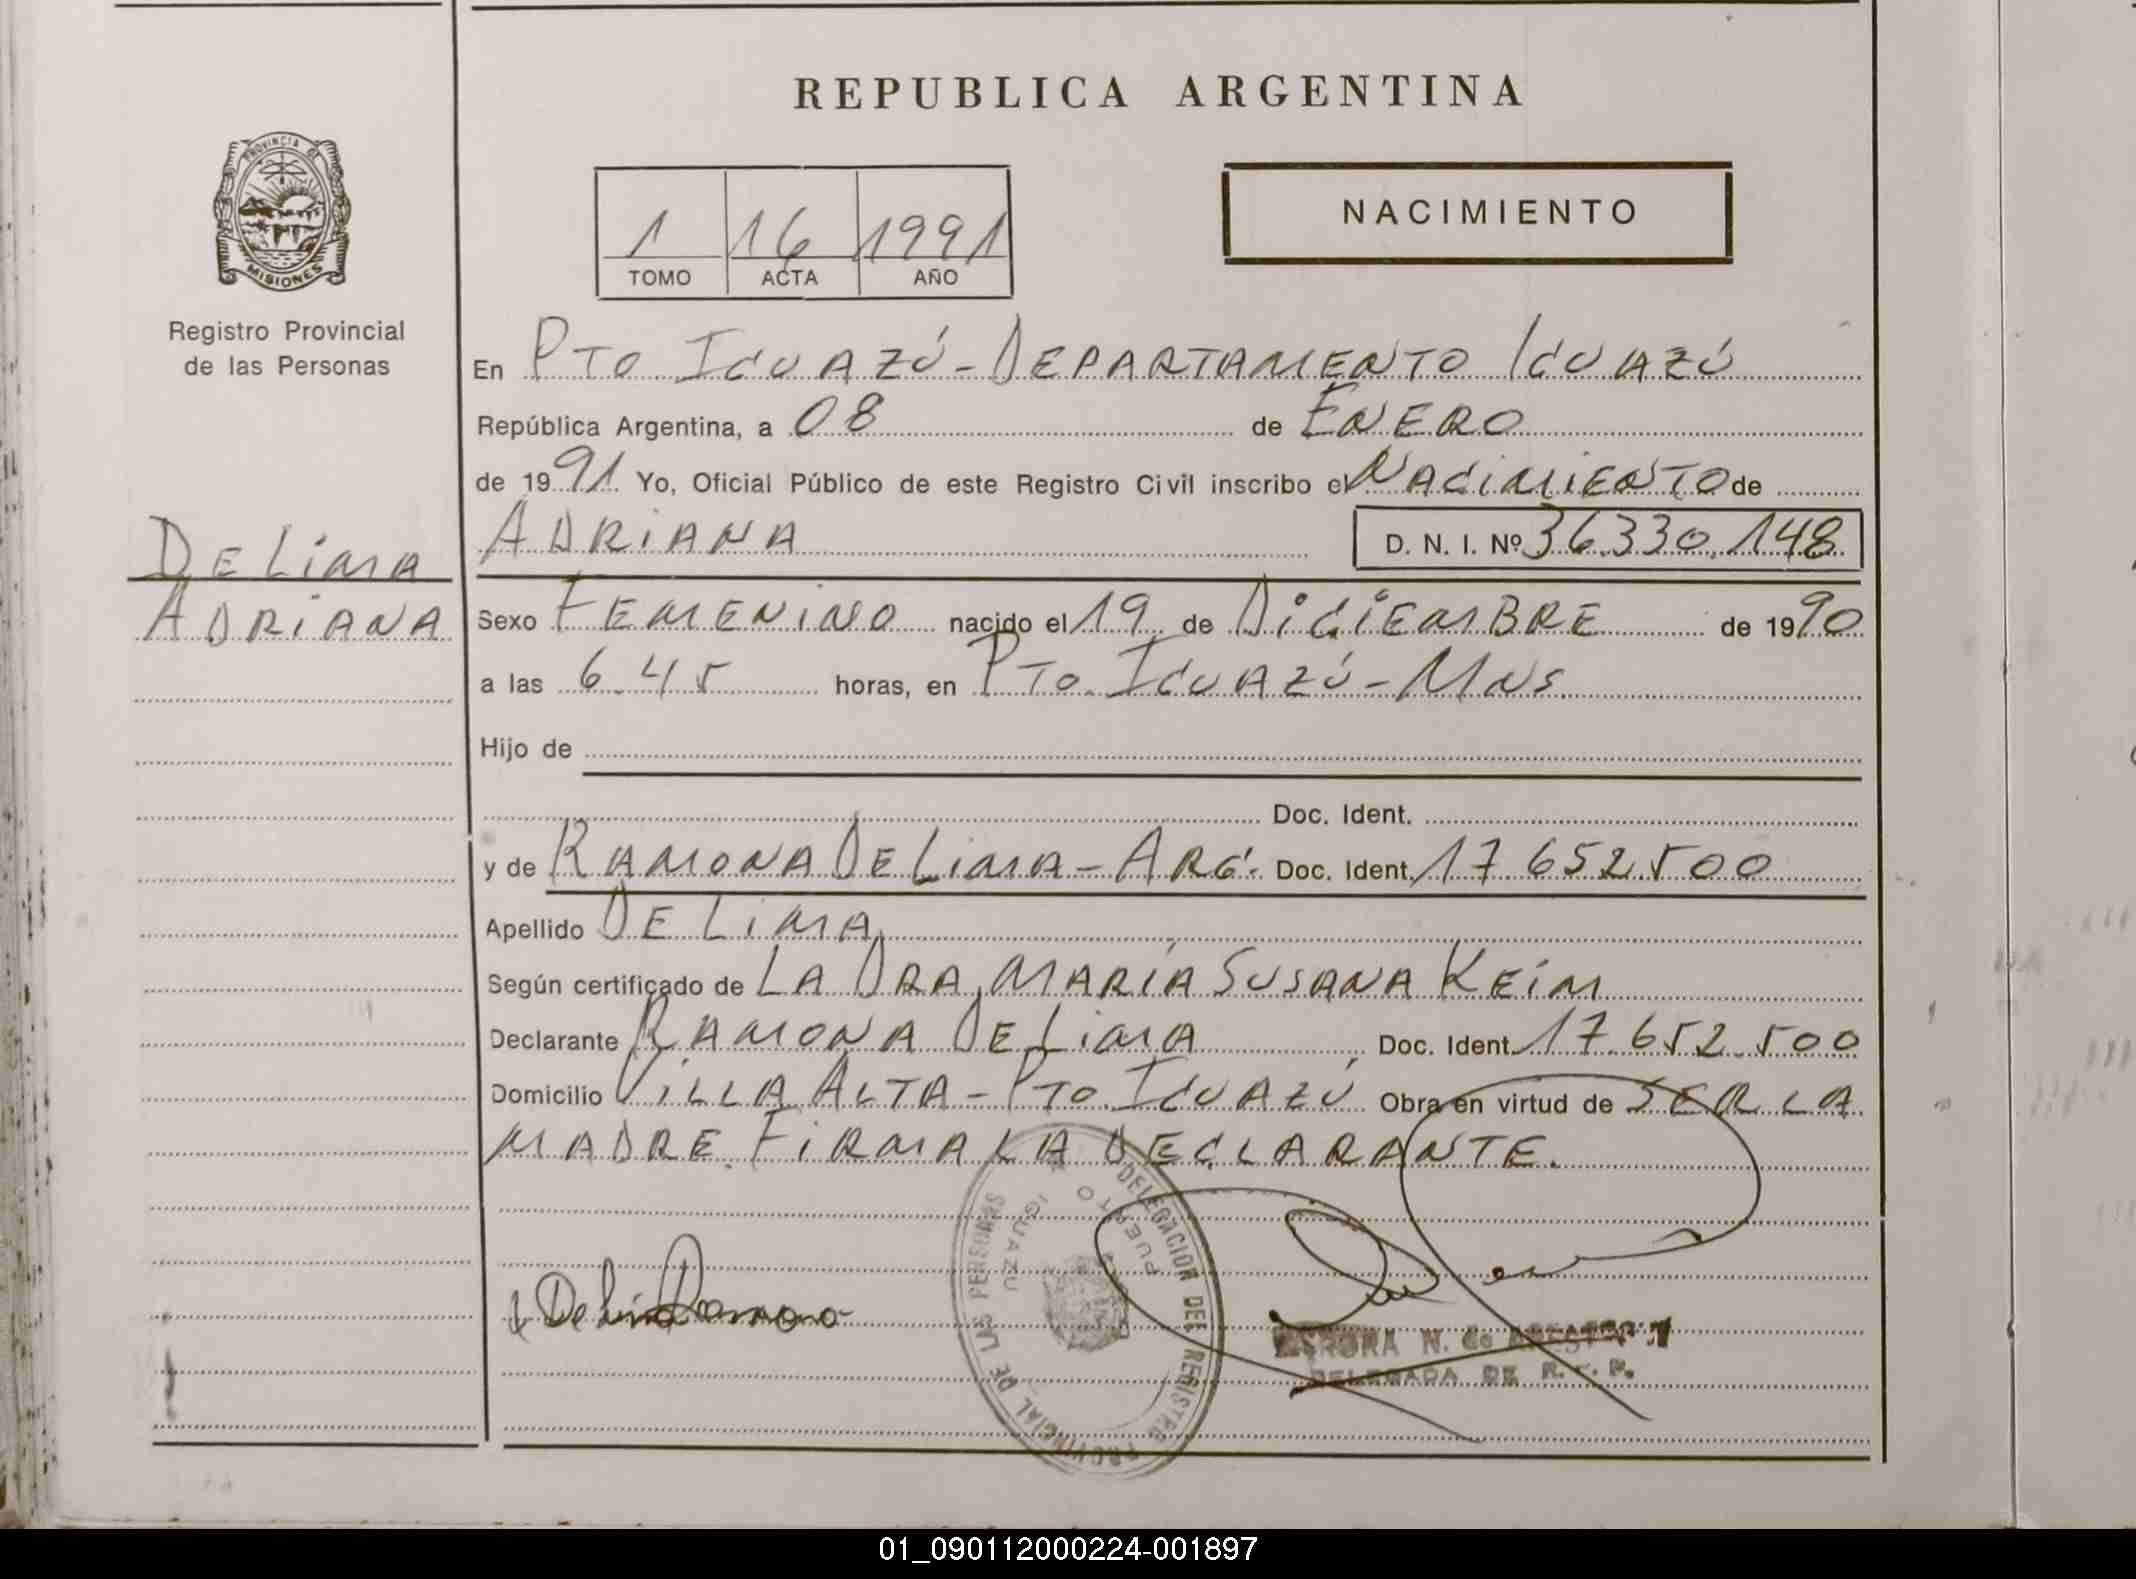 REPUBLICA ARGENTINA
PROVINCIA DE
MISIONES
Registro Provincial
de las Personas
1 16 1991
TOMO ACTA AÑO
NACIMIENTO
En PTO IGUAZÚ - DEPARTAMENTO IGUAZÚ
República Argentina, a 08 de ENERO
de 1991 Yo, Oficial Público de este Registro Civil inscribo el NACIMIENTO de
ADRIANA D. N. I. Nº 36.330.148
DE LIMA
ADRIANA
Sexo FEMENINO nacido el 19 de DICIEMBRE de 1990
a las 6.45 horas, en PTO. IGUAZÚ - MNS.
Hijo de
Doc. Ident.
y de RAMONA DE LIMA - ARG. Doc. Ident. 17.652.500
Apellido DE LIMA
Según certificado de LA DRA. MARÍA SUSANA KEIM
Declarante RAMONA DE LIMA Doc. Ident. 17.652.500
Domicilio VILLA ALTA - PTO. IGUAZÚ Obra en virtud de SER LA
MADRE. FIRMA LA DECLARANTE.
DELEGACION DEL REGISTRO PROVINCIAL DE LAS PERSONAS
PUERTO IGUAZU
De Lima Ramona
N. de
DELEGADA DE R. P.
01_090112000224-001897